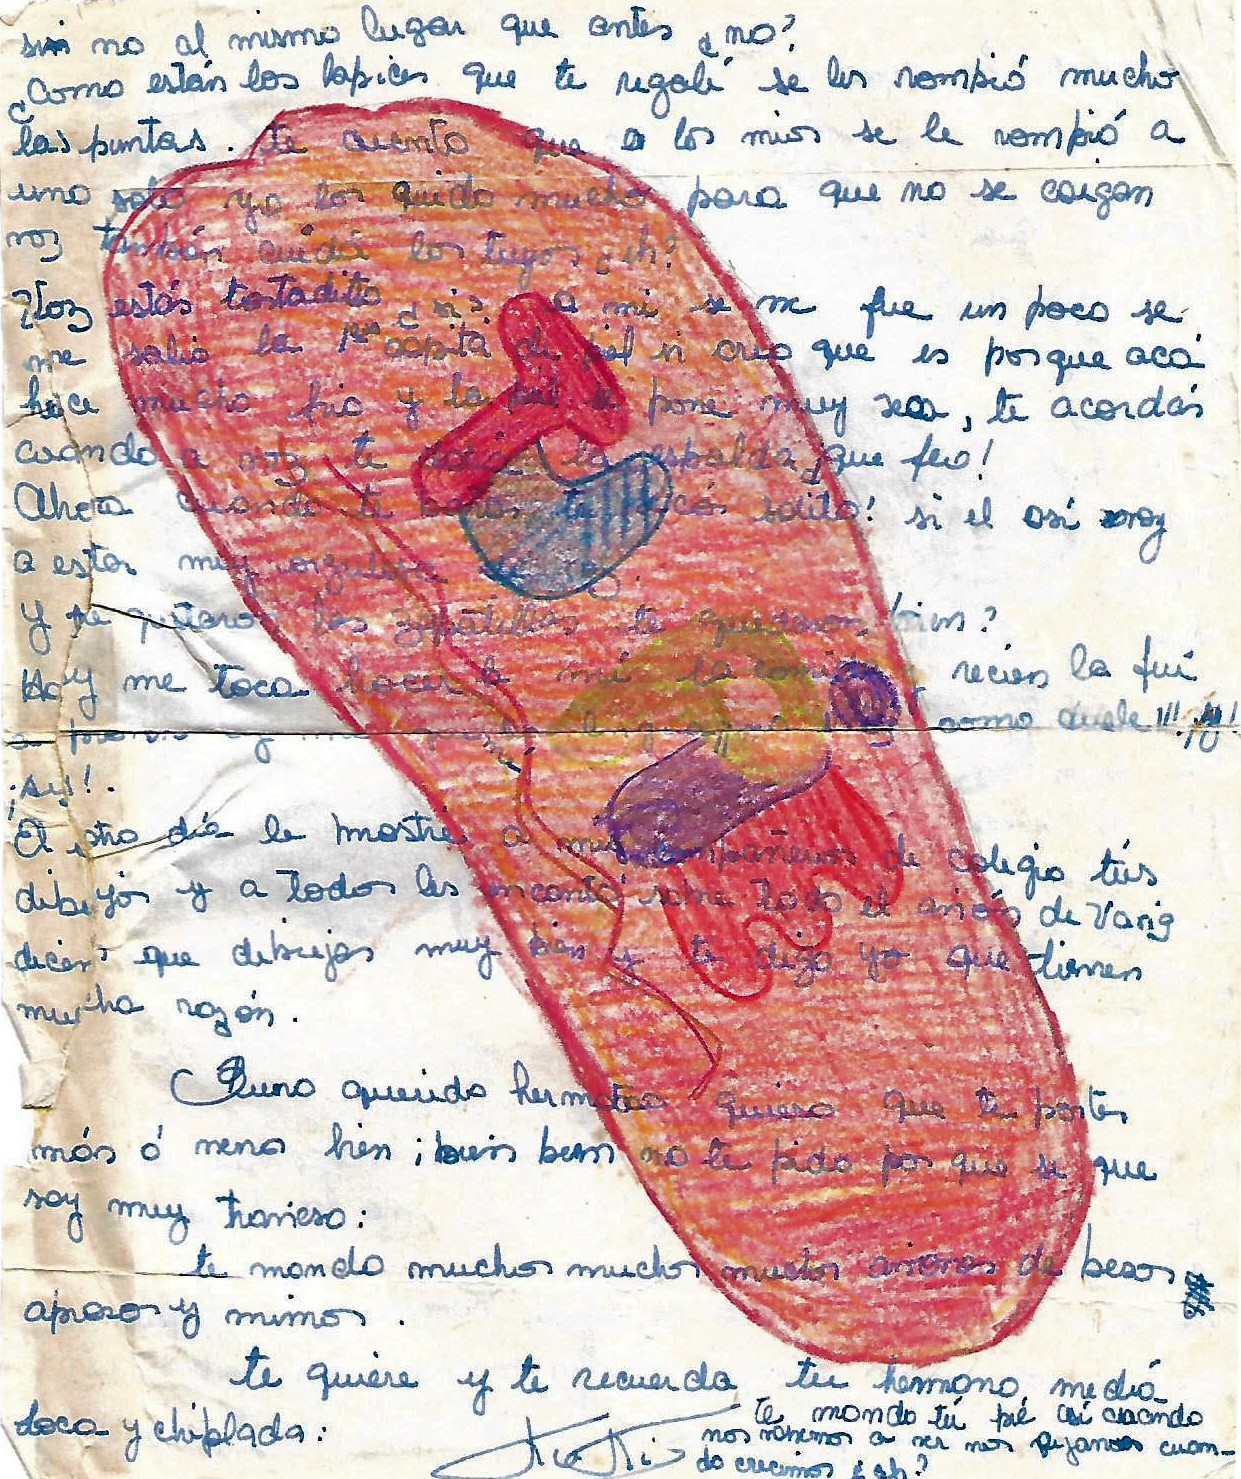 sin no al mismo lugar que antes ¿no?
¿Como están los lapices que te regalé se les rompió mucho
las puntas. te cuento que a los mios se le rompió a
uno solo yo los quido mucho para que no se caigan
voz también cuidá los tuyos ¿eh?
¿Voz estás tostadito ¿si? a mi se me fue un poco se
me salio la 1ra capita de piel si creo que es porque acá
hace mucho frio y la piel se pone muy seca, te acordás
cuando a voz te la espalda ¡que feo!
Ahora cuando te bañas te secás solito! si el así voy
a estar muy
Y te gustaron las zapatillas te quedaron bien?
Hoy me toca hacer a mi la comida, recien la fui
a como duele!!! ¡ay!
¡ay!.
El otro día le mostré a mis compañeros de colegio tús
dibujos y a todos les encantó sobre todo el avión de Varig
dicen que dibujas muy bien y te digo yo que tienen
mucha razón.
Bueno querido quiero que te portes
más ó menos bien ¡bien bien no te pido por que se que
soy muy travieso:
te mando muchos muchos muchos aviones de besos
apreso y mimos.
te quiere y te recuerda tu hermana, media
loca y chiplada:
te mando tú pié así cuando
nos vemos a ver nos fijamos cuan-
do crecimos ¿eh?